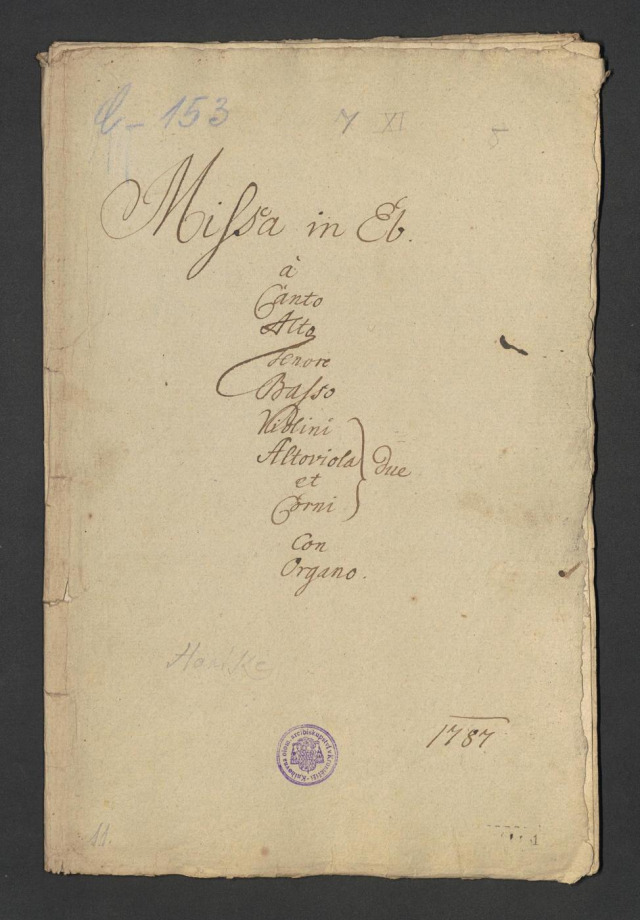 C–153
7 XI
5
Missa in Eb.
à
Canto
Alto
Tenore
Basso
Violini
Altoviola
et
Corni
due
Con
Organo.
1787
11.